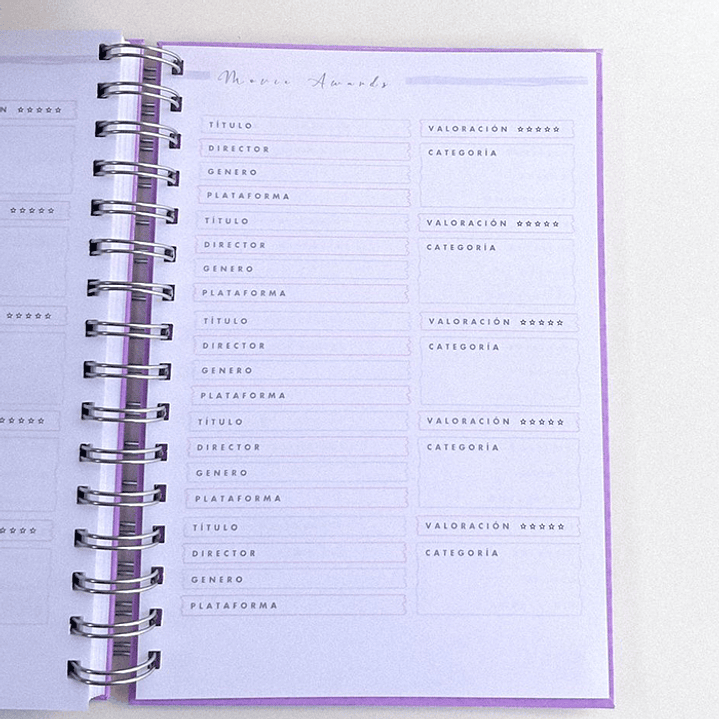 N ☆☆☆☆☆
☆☆☆☆☆
☆☆☆☆☆
☆☆☆☆☆
☆☆☆☆
Movie Awards
TÍTULO
DIRECTOR
GENERO
PLATAFORMA
VALORACIÓN ☆☆☆☆☆
CATEGORÍA
TÍTULO
DIRECTOR
GENERO
PLATAFORMA
VALORACIÓN ☆☆☆☆☆
CATEGORÍA
TÍTULO
DIRECTOR
GENERO
PLATAFORMA
VALORACIÓN ☆☆☆☆☆
CATEGORÍA
TÍTULO
DIRECTOR
GENERO
PLATAFORMA
VALORACIÓN ☆☆☆☆☆
CATEGORÍA
TÍTULO
DIRECTOR
GENERO
PLATAFORMA
VALORACIÓN ☆☆☆☆☆
CATEGORÍA